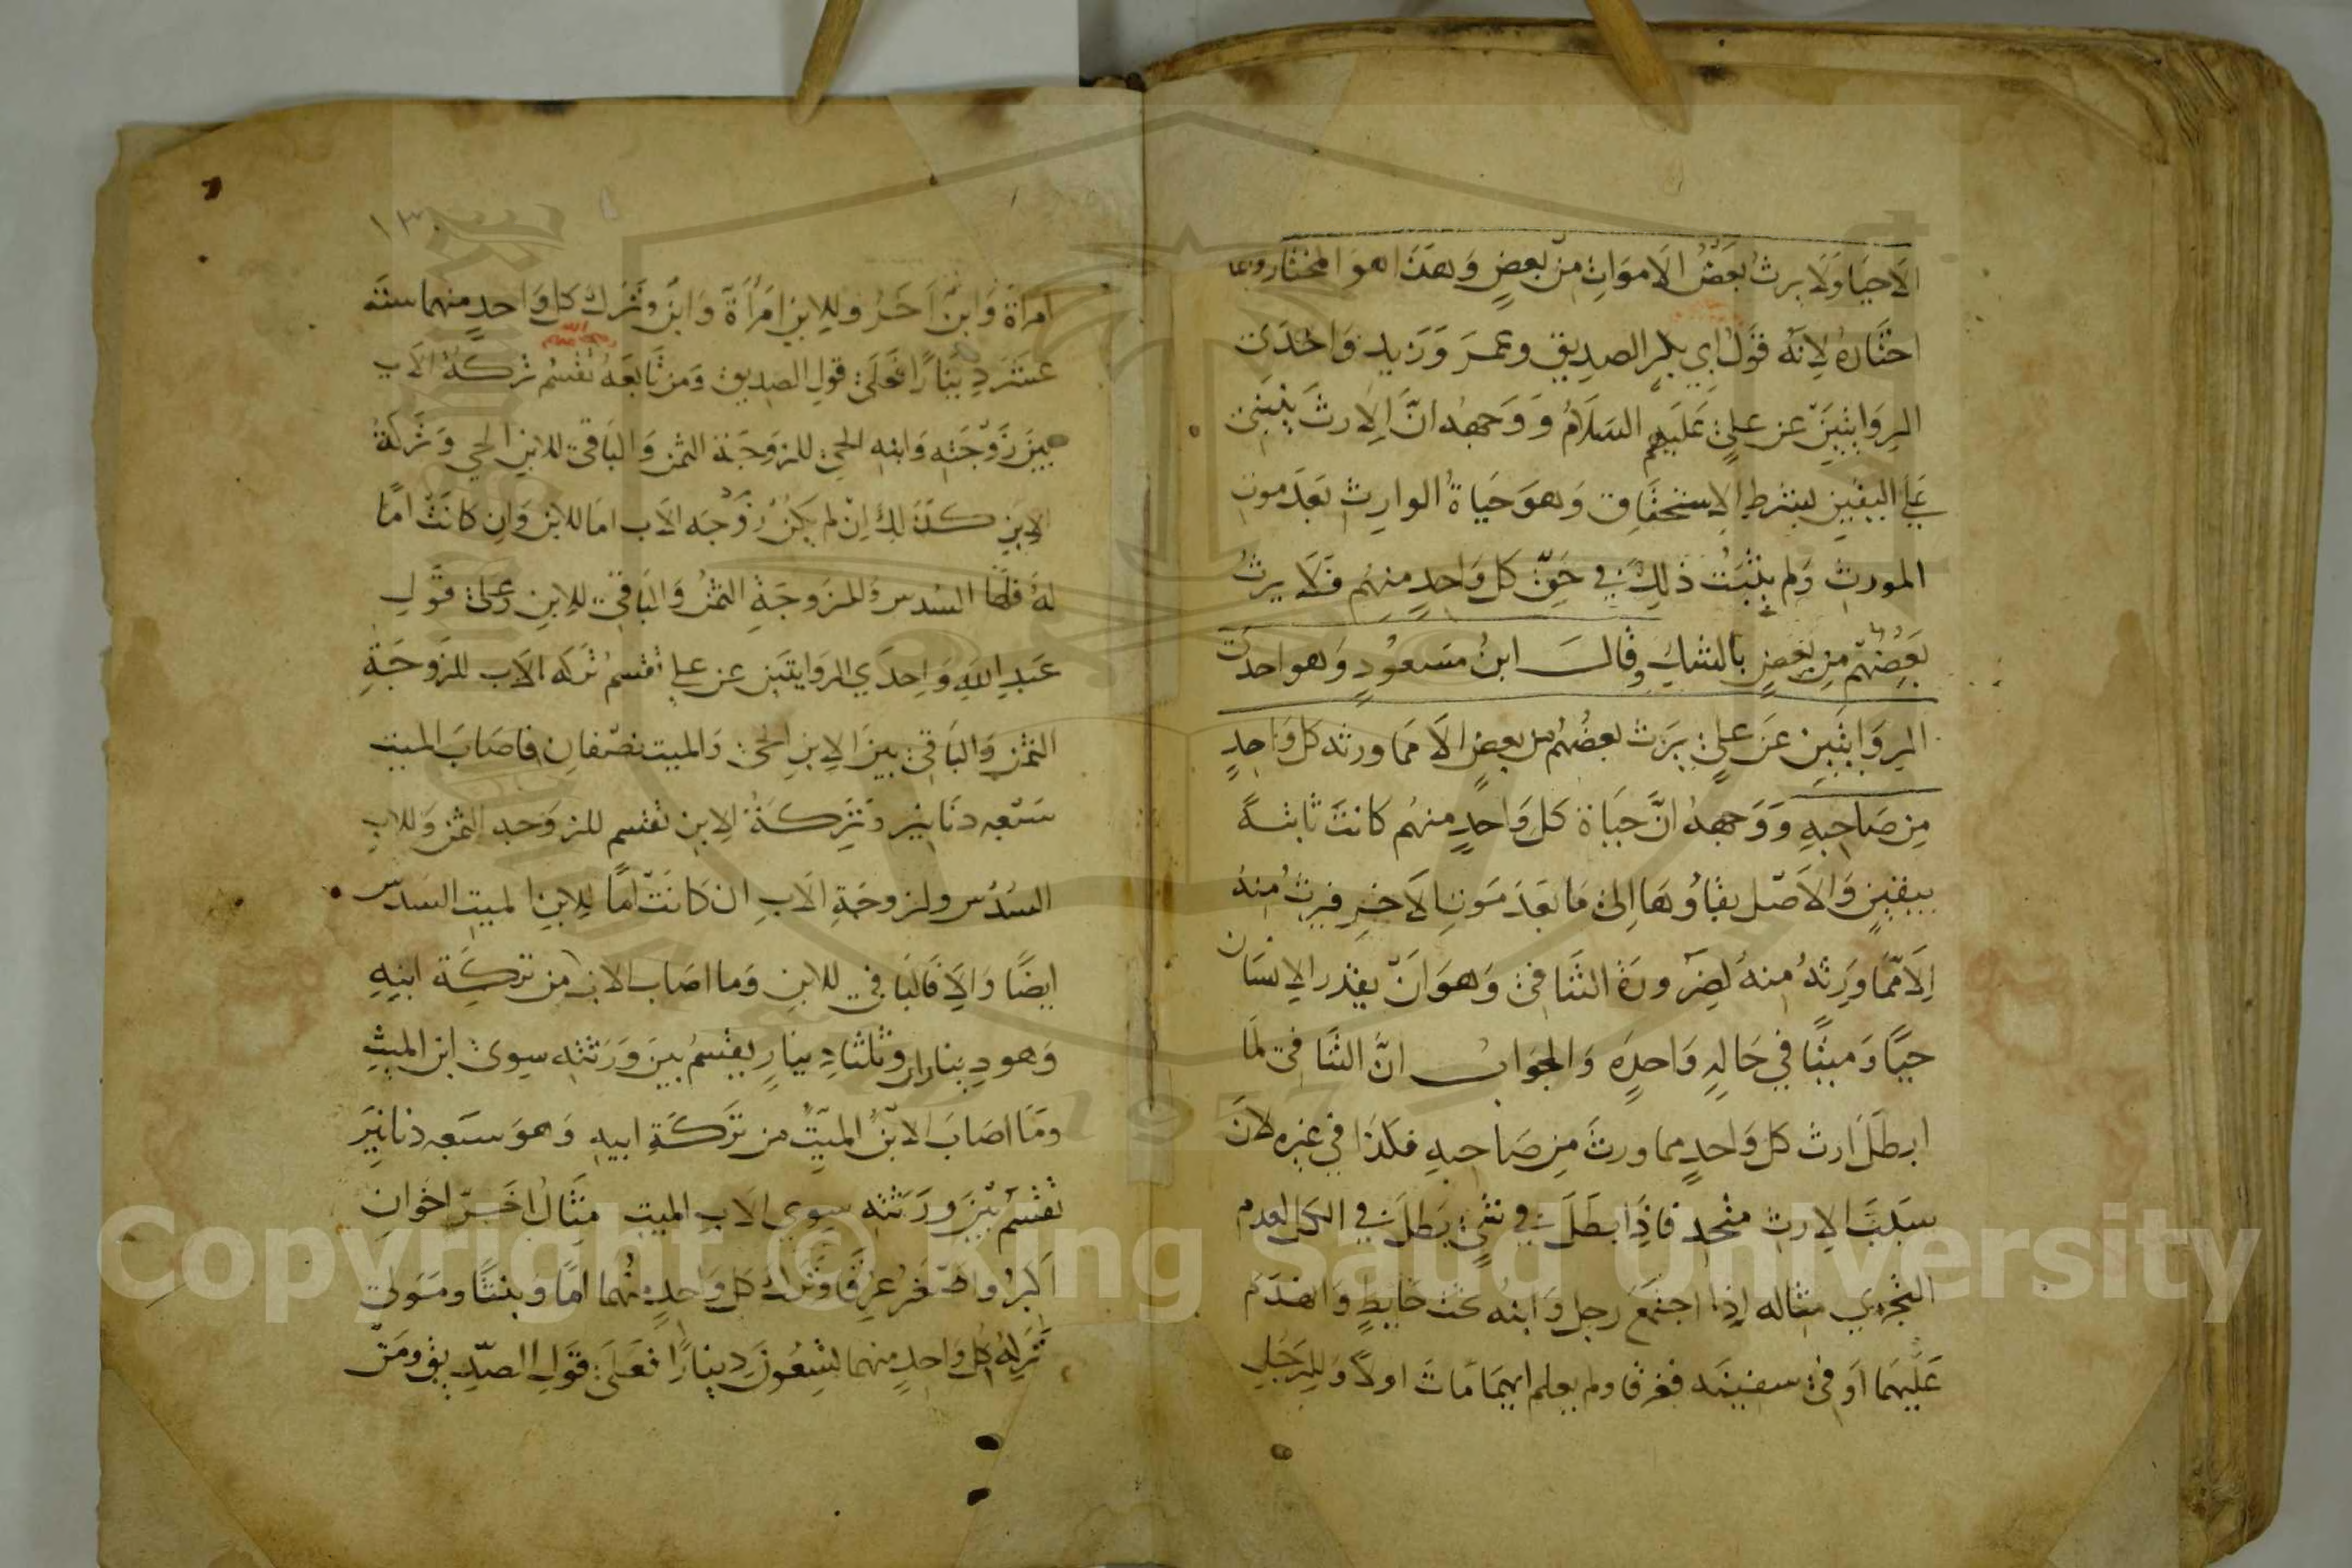 الاحيا ولا يرث بعض الاموات من بعض وهذا هو المختار وانما
اختاره لانه قول ابي بكر الصديق وعمر وزيد واحدى
الروايتين عن علي عليهم السلام ووجهه ان الارث ينبنى
على اليقين بشرط الاستحقاق وهو حياة الوارث بعد موت
المورث ولم يثبت ذلك في حق كل واحد منهم فلا يرث
بعضهم من بعض بالشك وقال ابن مسعود وهو احدى
الروايتين عن علي يرث بعضهم من بعض الا مما ورثه كل واحد
من صاحبه ووجهه ان حياة كل واحد منهم كانت ثابتة
بيقين والاصل بقاؤها الى ما بعد موت الاخر فيرث منه
الا مما ورثه منه لضرورة التنافى وهو ان يقدر الانسان
حيا وميتا في حاله واحده والجواب ان التنافى لما
ابطل ارث كل واحد مما ورث من صاحبه فكذا في غيره لان
سبب الارث متحد فاذا بطل في شي بطل في الكل لعدم
التجزي مثاله اذا اجتمع رجل وابنه تحت حايط وانهدم
عليهما او في سفينه فغرقا ولم يعلم ايهما مات اولا وللرجل
١٣٠
امراة وابن اخر وللابن امراة وابن وترك كل واحد منهما ستة
عشر دينارا فعلى قول الصديق ومن تابعه تقسم تركة الاب
رضي الله عنه
بين زوجته وابنه الحي للزوجة الثمن والباقي للابن الحي وتركة
الابن كذلك ان لم تكن زوجه الاب اما للابن وان كانت اما
له فلها السدس وللزوجة الثمن والباقي للابن وعلى قول
عبد الله واحدي الروايتين عن علي تقسم تركه الاب للزوجة
الثمن والباقي بين الابن الحي والميت نصفان فاصاب الميت
سبعه دنانير وتركة الابن تقسم للزوجه الثمن وللاب
السدس ولزوجة الاب ان كانت اما للابن الميت السدس
ايضا والا فالباقي للابن وما اصاب الاب من تركة ابنه
وهو ديناران وثلثا دينار يقسم بين ورثته سوى ابن الميت
وما اصاب الابن الميت من تركة ابيه وهو سبعه دنانير
تقسم بين ورثته سوي الاب الميت مثال اخر اخوان
اكبر واصغر غرقا وترك كل واحد منهما اما وبنتا ومولى
تركة كل واحد منهما تسعون دينارا فعلى قول الصديق ومن
Copyright © King Saud University
1957